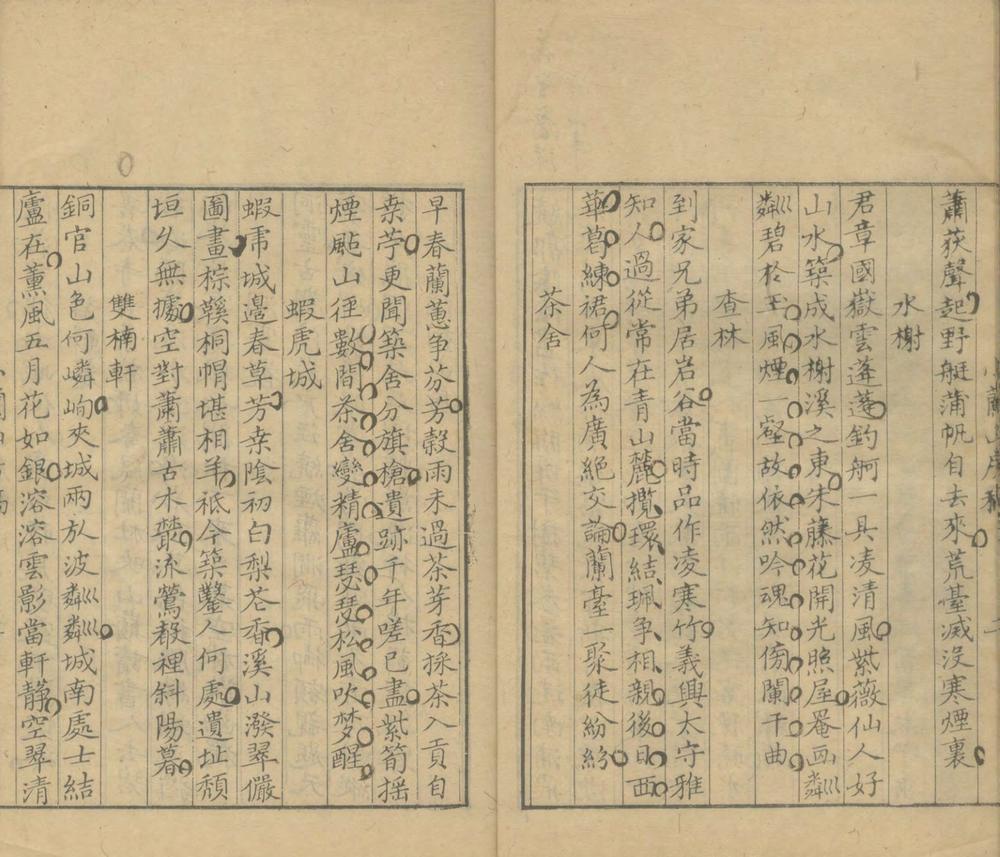 蕭荻聲起野艇蒲帆自去來荒臺滅沒寒煙裏
水榭
君章國嶽雲蓬蓬釣舸一具凌清風紫薇仙人好
山水築成水榭溪之東朱藤花開光照屋罨画粼
粼碧於玉風煙一壑故依然吟魂知傍闌干曲
查林
到家兄弟居岩谷當時品作凌寒竹義興太守雅
知人過從常在青山麓攬環結珮争相親後日西
華葛練裙何人為廣絕交論蘭臺一聚徒紛紛
茶舍
早春蘭蕙争芬芳穀雨未過茶芽香採茶入貢自
桒苧更聞築舍分旗槍貴迹千年嗟已盡紫筍摇
煙颭山徑數間茶舍變精廬瑟瑟松風吹梦醒
蝦虎城
蝦虎城邉春草芳桒陰初白梨花香溪山潑翠儼
圖畫棕鞵桐帽堪相羊祗今築鑿人何處遺址頽
垣久無據空對蕭蕭古木叢流鶯聲裡斜陽暮
雙楠軒
銅官山色何嶙峋夾城兩放波粼粼城南處士結
廬在薰風五月花如銀溶溶雲影當軒静空翠清